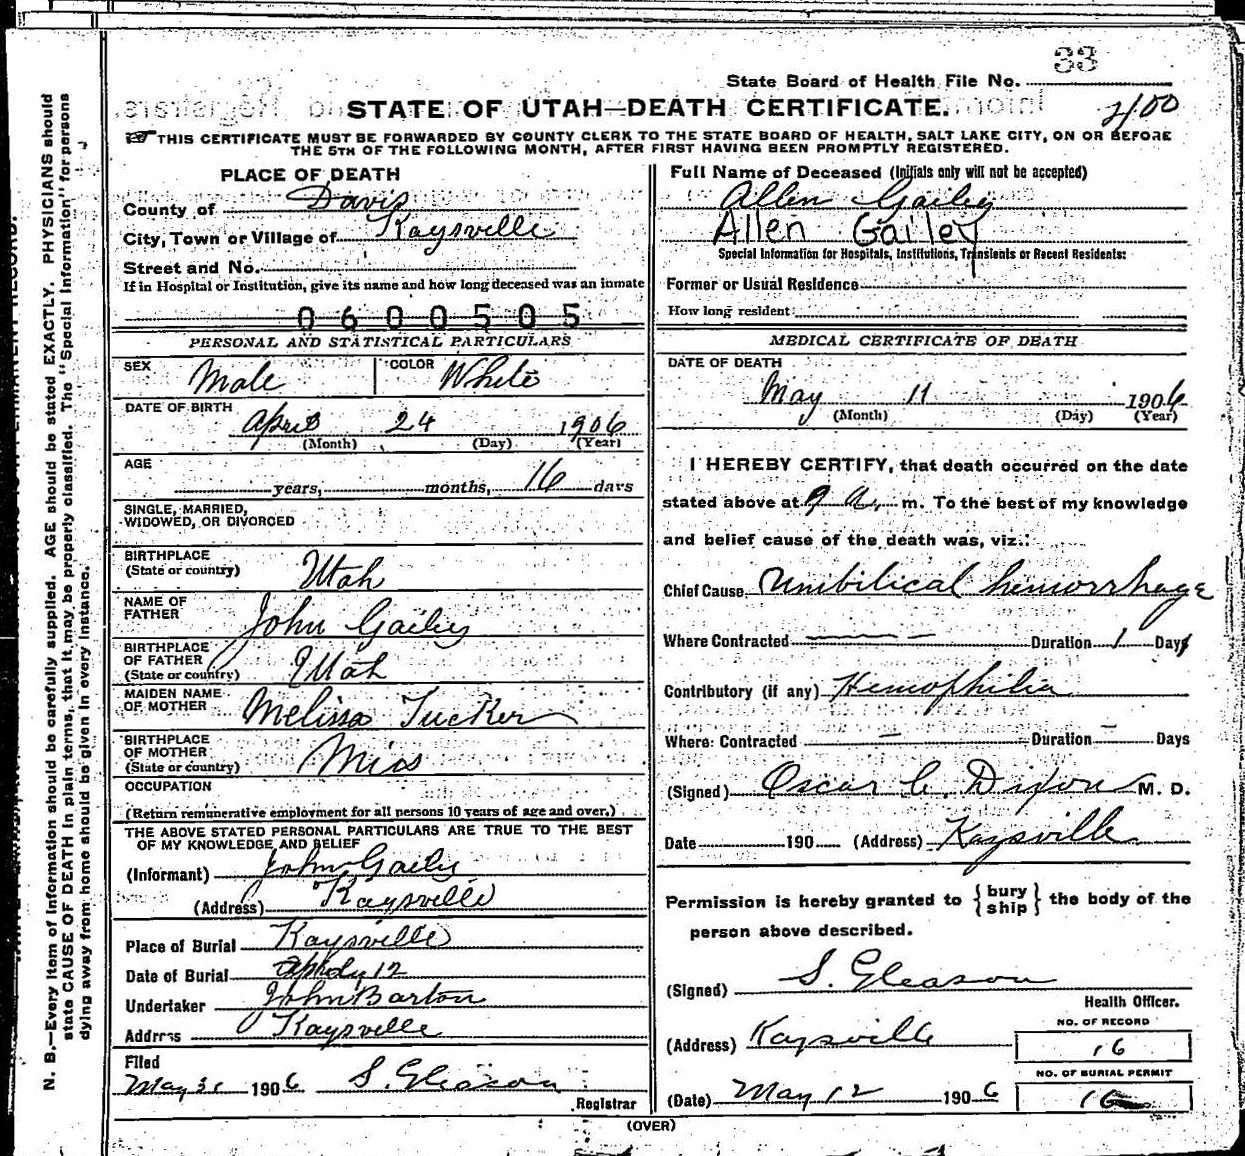 33
State Board of Health File No.
STATE OF UTAH—DEATH CERTIFICATE.
400
THIS CERTIFICATE MUST BE FORWARDED BY COUNTY CLERK TO THE STATE BOARD OF HEALTH, SALT LAKE CITY, ON OR BEFORE
THE 5TH OF THE FOLLOWING MONTH, AFTER FIRST HAVING BEEN PROMPTLY REGISTERED.
PLACE OF DEATH
County of Davis
City, Town or Village of Kaysville
Street and No.
If in Hospital or Institution, give its name and how long deceased was an inmate
0600505
PERSONAL AND STATISTICAL PARTICULARS
SEX Male COLOR White
DATE OF BIRTH
April 24 1906
(Month) (Day) (Year)
AGE
years, months, 16 days
SINGLE, MARRIED,
WIDOWED, OR DIVORCED
BIRTHPLACE
(State or country) Utah
NAME OF
FATHER John Gailey
BIRTHPLACE
OF FATHER
(State or country) Utah
MAIDEN NAME
OF MOTHER Melissa Tucker
BIRTHPLACE
OF MOTHER
(State or country) Miss
OCCUPATION
(Return remunerative employment for all persons 10 years of age and over.)
THE ABOVE STATED PERSONAL PARTICULARS ARE TRUE TO THE BEST
OF MY KNOWLEDGE AND BELIEF
(Informant) John Gailey
(Address) Kaysville
Place of Burial Kaysville
Date of Burial 12
Undertaker John Barton
Address Kaysville
Filed
May 31 1906 S. Gleason
Registrar
Full Name of Deceased (Initials only will not be accepted)
Allen Gailey
Allen Gailey
Special Information for Hospitals, Institutions, Transients or Recent Residents:
Former or Usual Residence
How long resident:
MEDICAL CERTIFICATE OF DEATH
DATE OF DEATH
May 11 1906
(Month) (Day) (Year)
I HEREBY CERTIFY, that death occurred on the date
stated above at 9 a. m. To the best of my knowledge
and belief cause of the death was, viz.:
Chief Cause Umbilical hemorrhage
Where Contracted Duration 1 Days
Contributory (if any) Hemophilia
Where Contracted Duration Days
(Signed) Oscar C. Dixon M. D.
Date 190 (Address) Kaysville
Permission is hereby granted to {bury
ship} the body of the
person above described.
(Signed) S. Gleason
Health Officer.
(Address) Kaysville
NO. OF RECORD
16
NO. OF BURIAL PERMIT
16
(Date) May 12 1906
(OVER)
N. B.—Every item of information should be carefully supplied. AGE should be stated EXACTLY. PHYSICIANS should
state CAUSE OF DEATH in plain terms, that it may be properly classified. The "Special Information" for persons
dying away from home should be given in every instance.